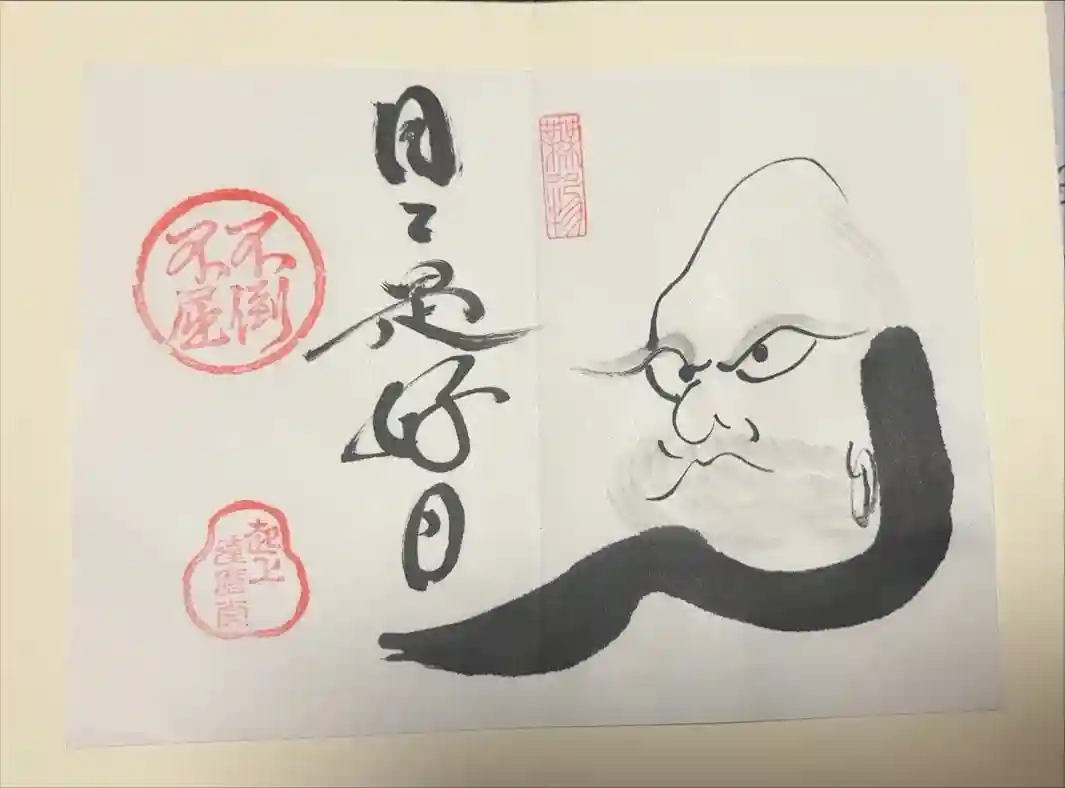 日々是好日
不倒
不屈
起上
達磨